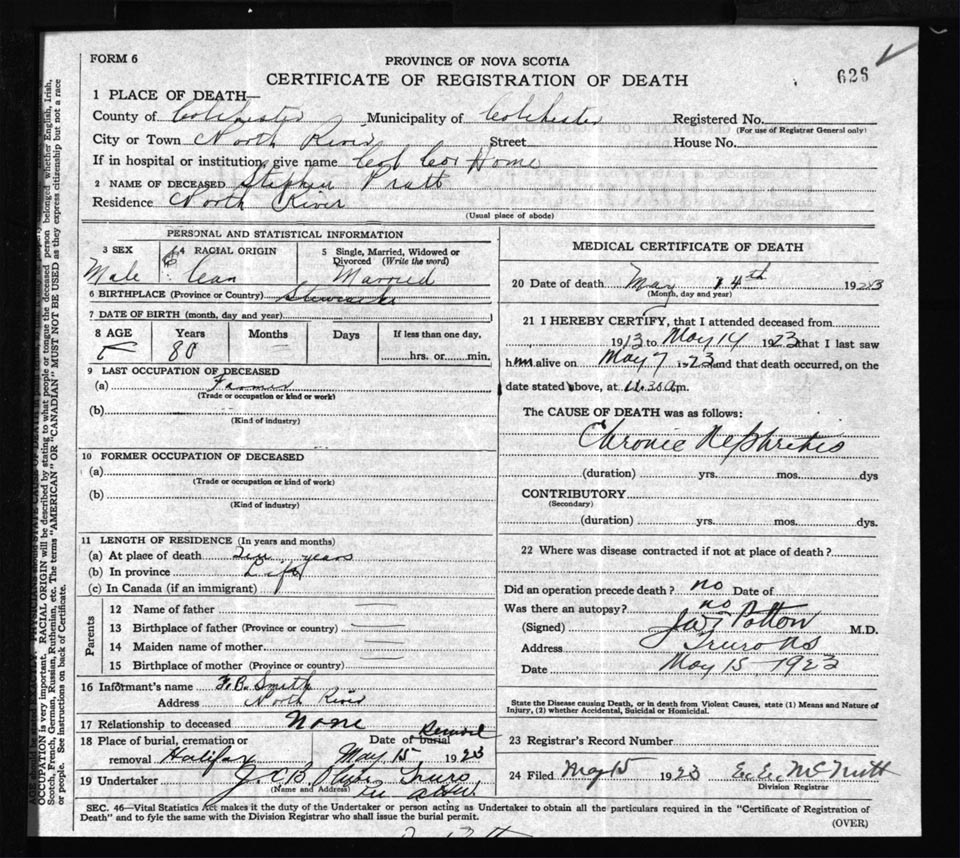 FORM 6
PROVINCE OF NOVA SCOTIA
CERTIFICATE OF REGISTRATION OF DEATH
626
1 PLACE OF DEATH—
County of Colchester Municipality of Colchester Registered No.
(For use of Registrar General only)
City or Town North River Street House No.
If in hospital or institution, give name Col Co Home
2 NAME OF DECEASED Stephen Pratt
Residence North River
(Usual place of abode)
PERSONAL AND STATISTICAL INFORMATION
3 SEX 4 RACIAL ORIGIN 5 Single, Married, Widowed or Divorced (Write the word)
Male Married
6 BIRTHPLACE (Province or Country) Stewiacke
7 DATE OF BIRTH (month, day and year)
8 AGE Years Months Days If less than one day,
80 hrs. or min.
9 LAST OCCUPATION OF DECEASED
(a) Farmer
(Trade or occupation or kind or work)
(b)
(Kind of industry)
10 FORMER OCCUPATION OF DECEASED
(a)
(Trade or occupation or kind of work)
(b)
(Kind of industry)
11 LENGTH OF RESIDENCE (In years and months)
(a) At place of death Ten years
(b) In province Life
(c) In Canada (if an immigrant)
Parents
12 Name of father
13 Birthplace of father (Province or country)
14 Maiden name of mother
15 Birthplace of mother (Province or country)
16 Informant's name F. B. Smith
Address North River
17 Relationship to deceased None
18 Place of burial, cremation or Date of burial Removal
removal Halifax May 15 1923
19 Undertaker Truro
(Name and Address)
MEDICAL CERTIFICATE OF DEATH
20 Date of death May 14th 1923
(Month, day and year)
21 I HEREBY CERTIFY, that I attended deceased from
1913 to May 14 1923 that I last saw
him alive on May 7 1923 and that death occurred, on the
date stated above, at 11.30 a.m.
The CAUSE OF DEATH was as follows:
Chronic Nephritis
(duration) yrs. mos. dys
CONTRIBUTORY
(Secondary)
(duration) yrs. mos. dys.
22 Where was disease contracted if not at place of death?
Did an operation precede death? no Date of
Was there an autopsy? no
(Signed) Patton M.D.
Address Truro NS
Date May 15 1923
State the Disease causing Death, or in death from Violent Causes, state (1) Means and Nature of
Injury, (2) whether Accidental, Suicidal or Homicidal.
23 Registrar's Record Number
24 Filed May 15 1923 E. E. McNutt
Division Registrar
SEC. 46—Vital Statistics Act makes it the duty of the Undertaker or person acting as Undertaker to obtain all the particulars required in the "Certificate of Registration of
Death" and to fyle the same with the Division Registrar who shall issue the burial permit.
(OVER)
OCCUPATION is very important. RACIAL ORIGIN will be described by stating to what people or tongue the deceased person belonged whether English, Irish,
Scotch, French, German, Russian, Ruthenian, etc. The terms "AMERICAN" OR "CANADIAN" MUST NOT BE USED as they express citizenship but not a race
or people. See instructions on back of Certificate.